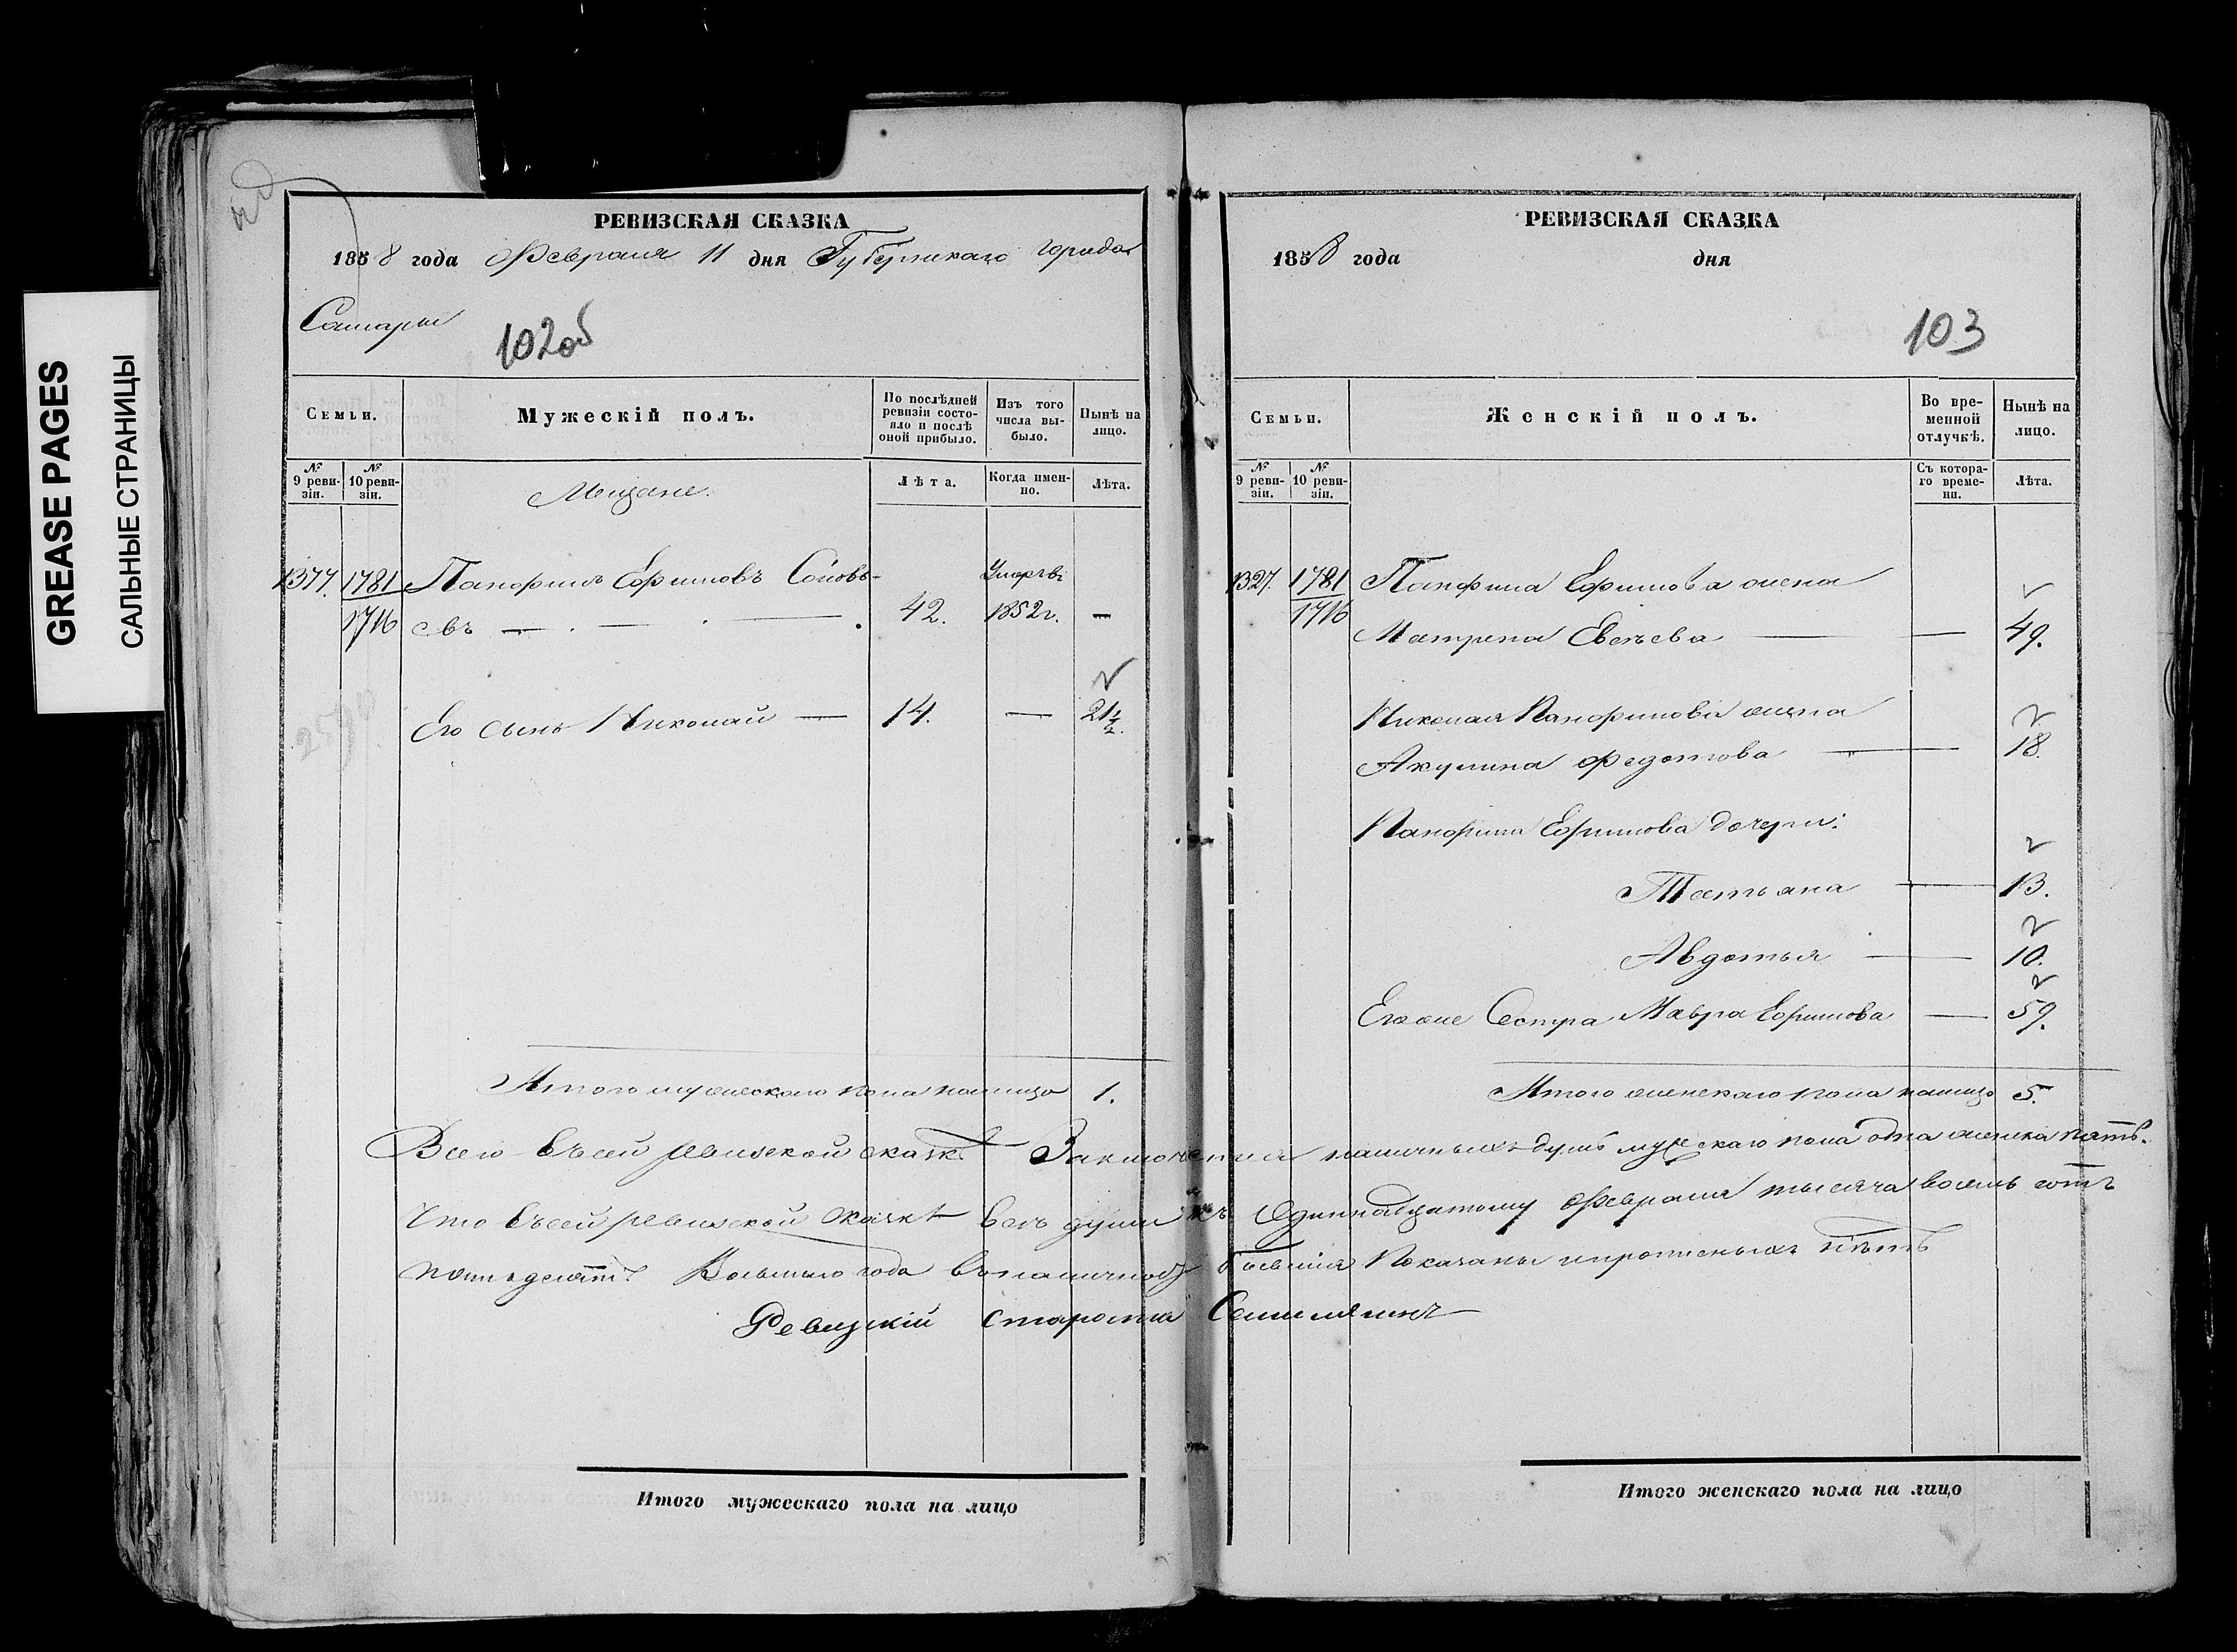 GREASE PAGES
САЛЬНЫЕ СТРАНИЦЫ
РЕВИЗСКАЯ СКАЗКА
1858 года Февраля 11 дня Губернскаго города
Самары
102об
Семьи.
Мужескій полъ.
По послѣдней ревизіи состояло и послѣ оной прибыло.
Изъ того числа выбыло.
Нынѣ на лицо.
№ 9 ревизіи.
№ 10 ревизіи.
Мещане.
Лѣта.
Когда именно.
Лѣта.
1377. 1781 Панфилъ Ефимовъ Соловь- Умеръ въ
1716 евъ — 42. 1852 г. —
Его сынъ Николай — 14. — 21 1/2.
Итого мужескаго пола налицо 1.
РЕВИЗСКАЯ СКАЗКА
1858 года дня
103
Семьи.
Женскій полъ.
Во временной отлучкѣ.
Нынѣ на лицо.
№ 9 ревизіи.
№ 10 ревизіи.
Съ котораго времени.
Лѣта.
1327. 1781 Панфила Ефимова жена
1716
Матрена — 49.
Николая Панфилова жена
Акулина Федотова — 18.
Панфила Ефимова дочери:
Татьяна — 13.
Авдотья — 10.
Егоже Сестра Мавра Ефимова — 59.
Итого женскаго пола налицо 5.
Всего въ сей ревизской сказкѣ Заключается наличныхъ душъ мужескаго пола одна женска пять.
Что въ сей ревизской сказкѣ все души къ Одиннадцатому Февраля тысяча восемь сотъ
пятьдесятъ Восьмаго года въ наличности бывшія Показаны и прописныхъ нѣтъ
Ревизскій староста
Итого мужескаго пола на лицо
Итого женскаго пола на лицо